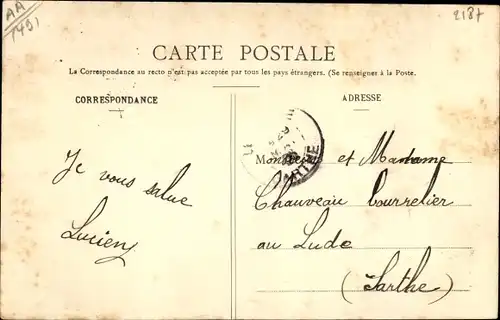 AA
1491
2187
CARTE POSTALE
La Correspondance au recto n'est pas acceptée par tous les pays étrangers. (Se renseigner à la Poste.
CORRESPONDANCE
ADRESSE
Je vous salue
Lucien
Monsieur et Madame
Chauveau bourrelier
au Lude
(Sarthe)